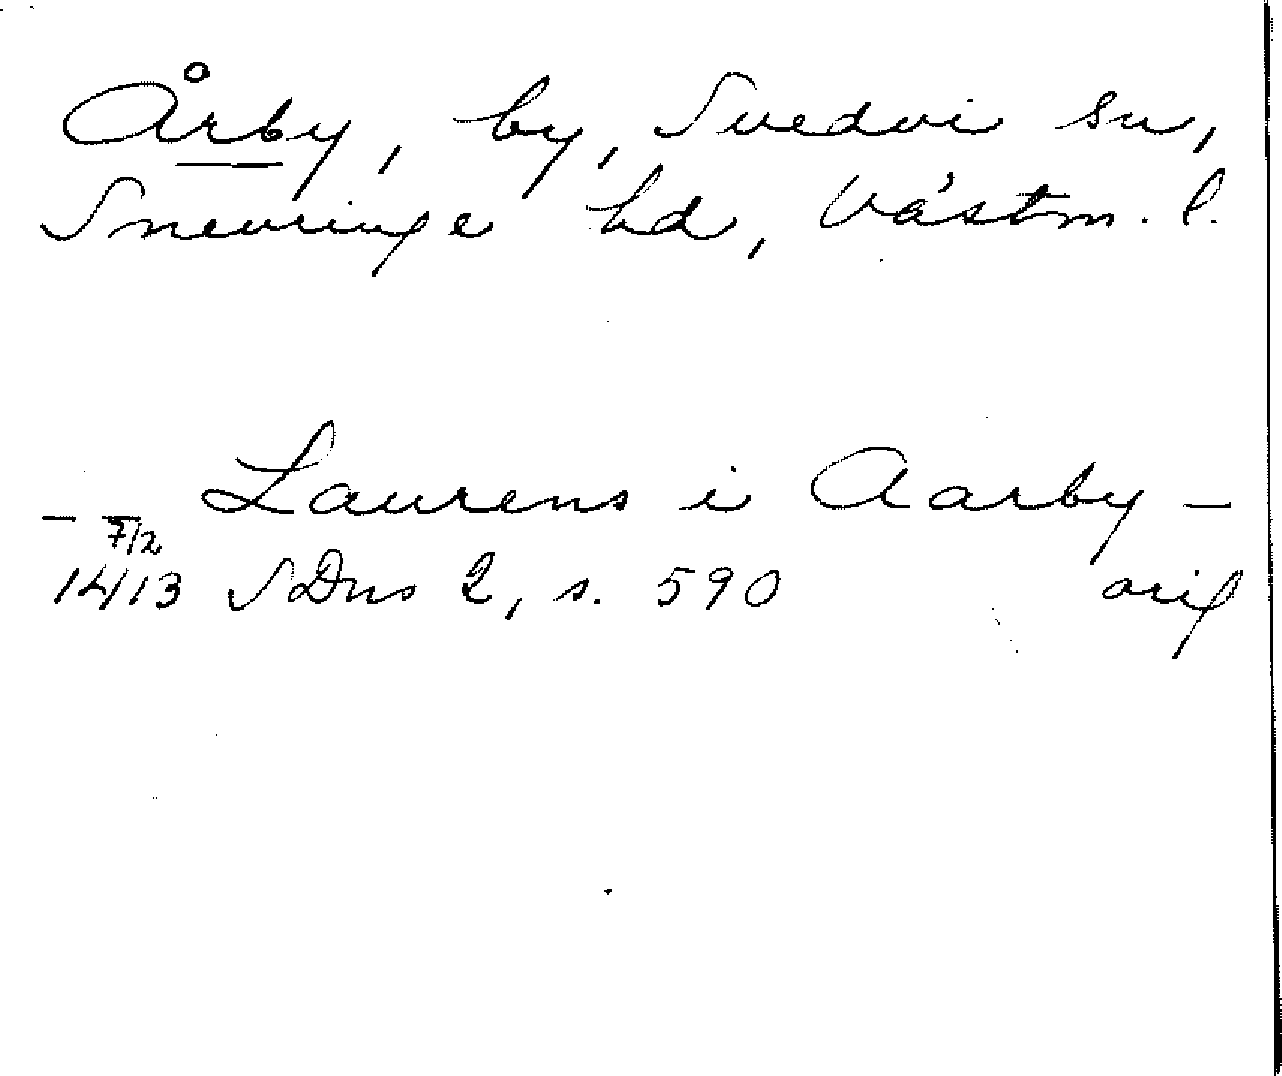 Årby, by, Svedvi sn,
Snevringe hd, Västm. l.
— Laurens i Aarby —
7/2
1413 SDns 2, s. 590 orig